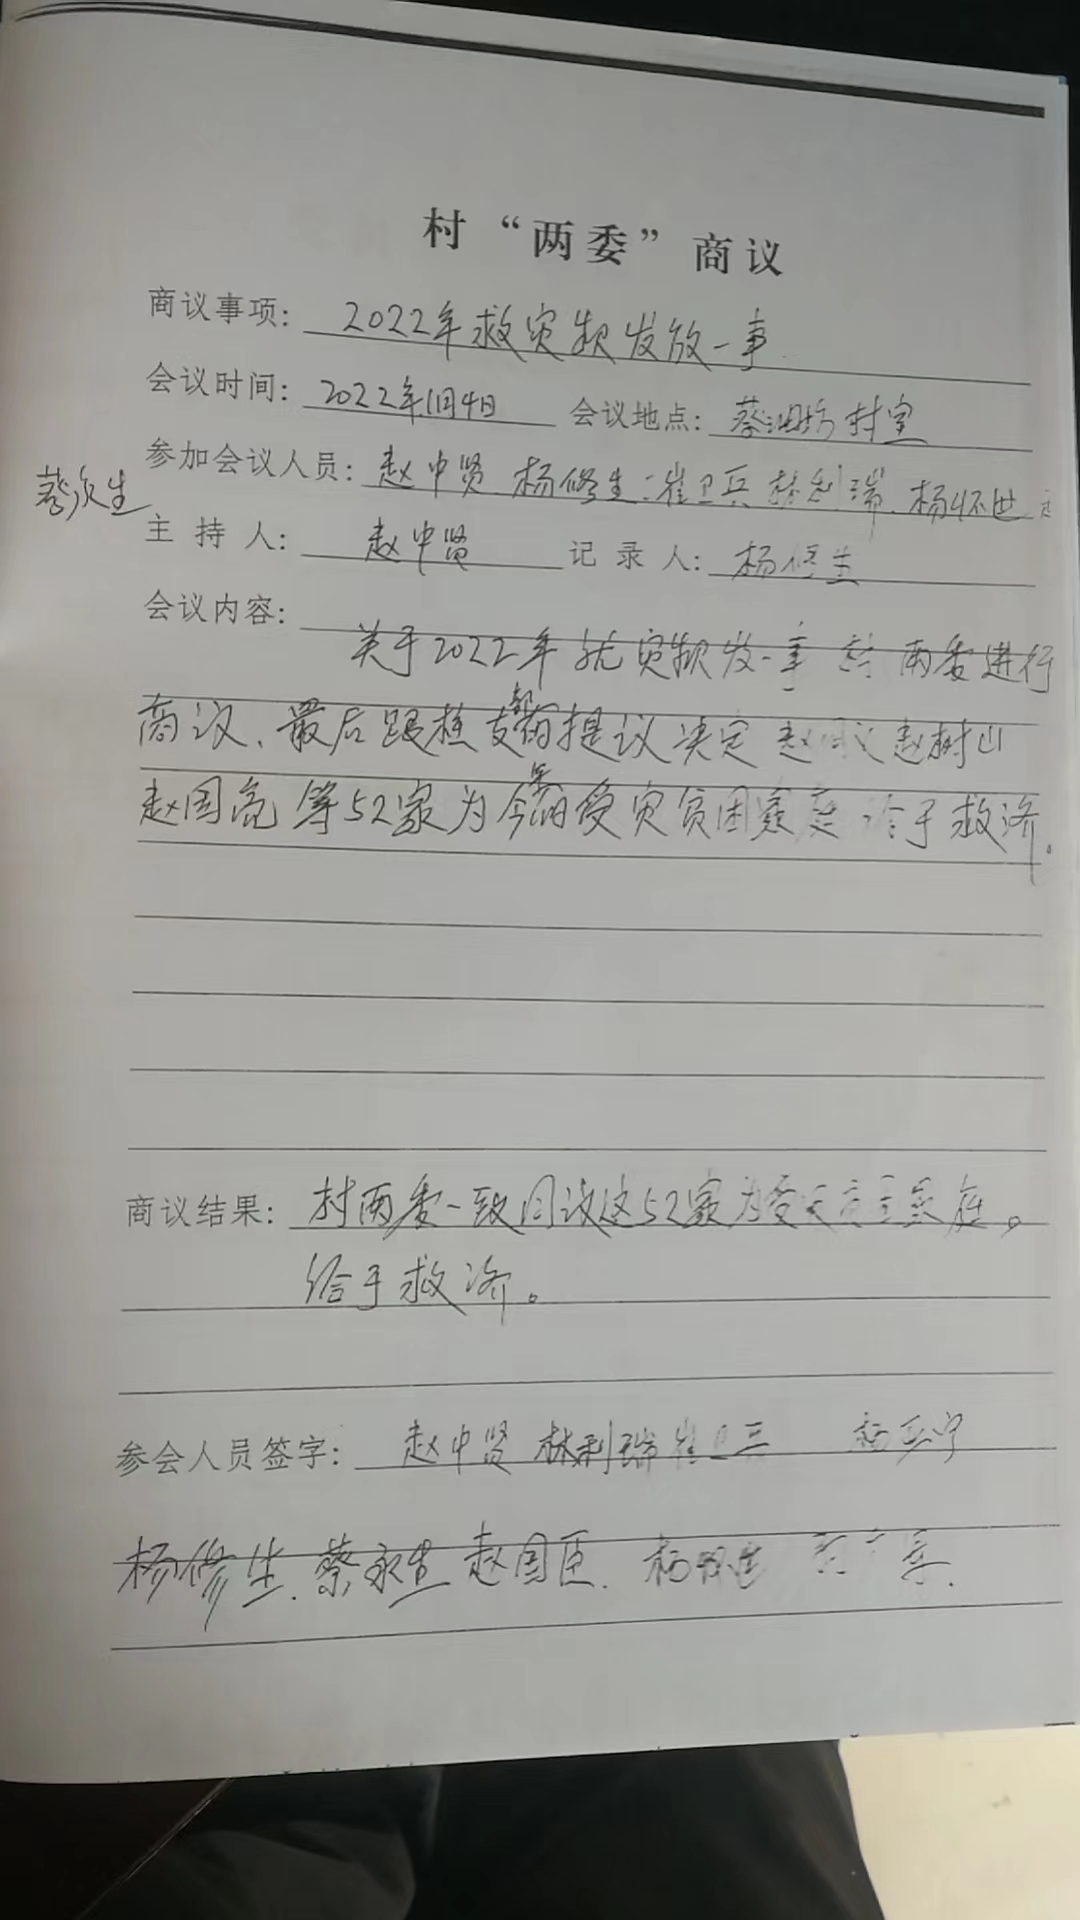 村“两委”商议
商议事项: 2022年救灾款发放一事
会议时间: 2022年1月4日 会议地点: 蔡油坊村室
参加会议人员: 赵中贤 杨修生 崔卫兵 林利瑞 杨怀进
蔡永生
主持人: 赵中贤 记录人: 杨修生
会议内容:
关于2022年救灾款发一事 村两委进行
商议、最后跟据支部的提议决定 赵国义 赵树山
赵国亮 等52家为今年的受灾贫困家庭 给于救济。
商议结果: 村两委一致同议这52家为受灾家庭。
给于救济。
参会人员签字: 赵中贤 林利瑞 崔卫兵
杨修生、蔡永生 赵国臣、